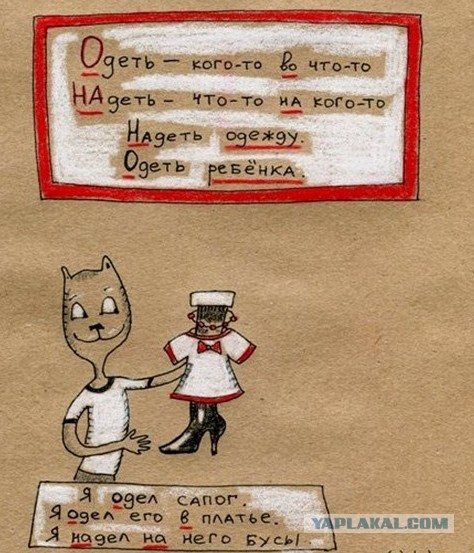 Одеть – кого-то во что-то
НАдеть – что-то на кого-то
Надеть одежду.
Одеть ребёнка.
Я одел сапог.
Я одел его в платье.
Я надел на него бусы
YAPLAKAL.COM